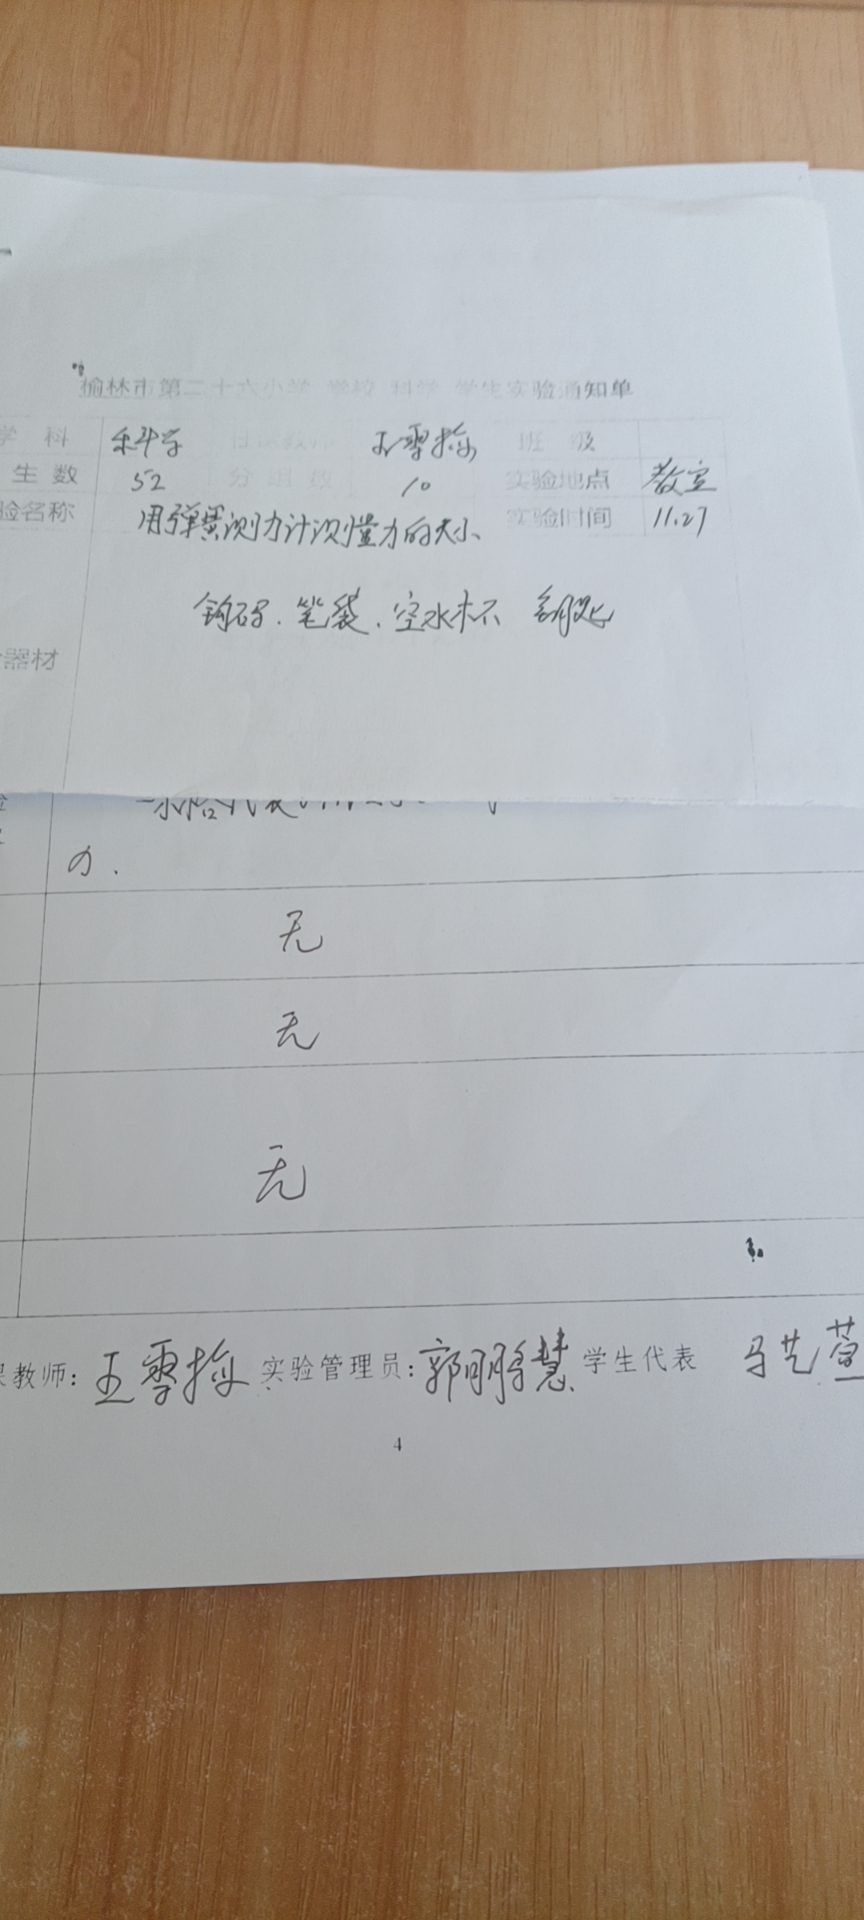 榆林市第二十六小学 学校 科学 学生实验通知单
学 科 科学 任课教师 王雪梅 班 级
生 数 52 分 组 数 10 实验地点 教室
验名称 用弹簧测力计测量力的大小 实验时间 11.27
钩码、笔袋、空水杯 钥匙
器材
力.
无
无
无
教师: 王雪梅 实验管理员: 郭鹏慧 学生代表 马艺萱
4